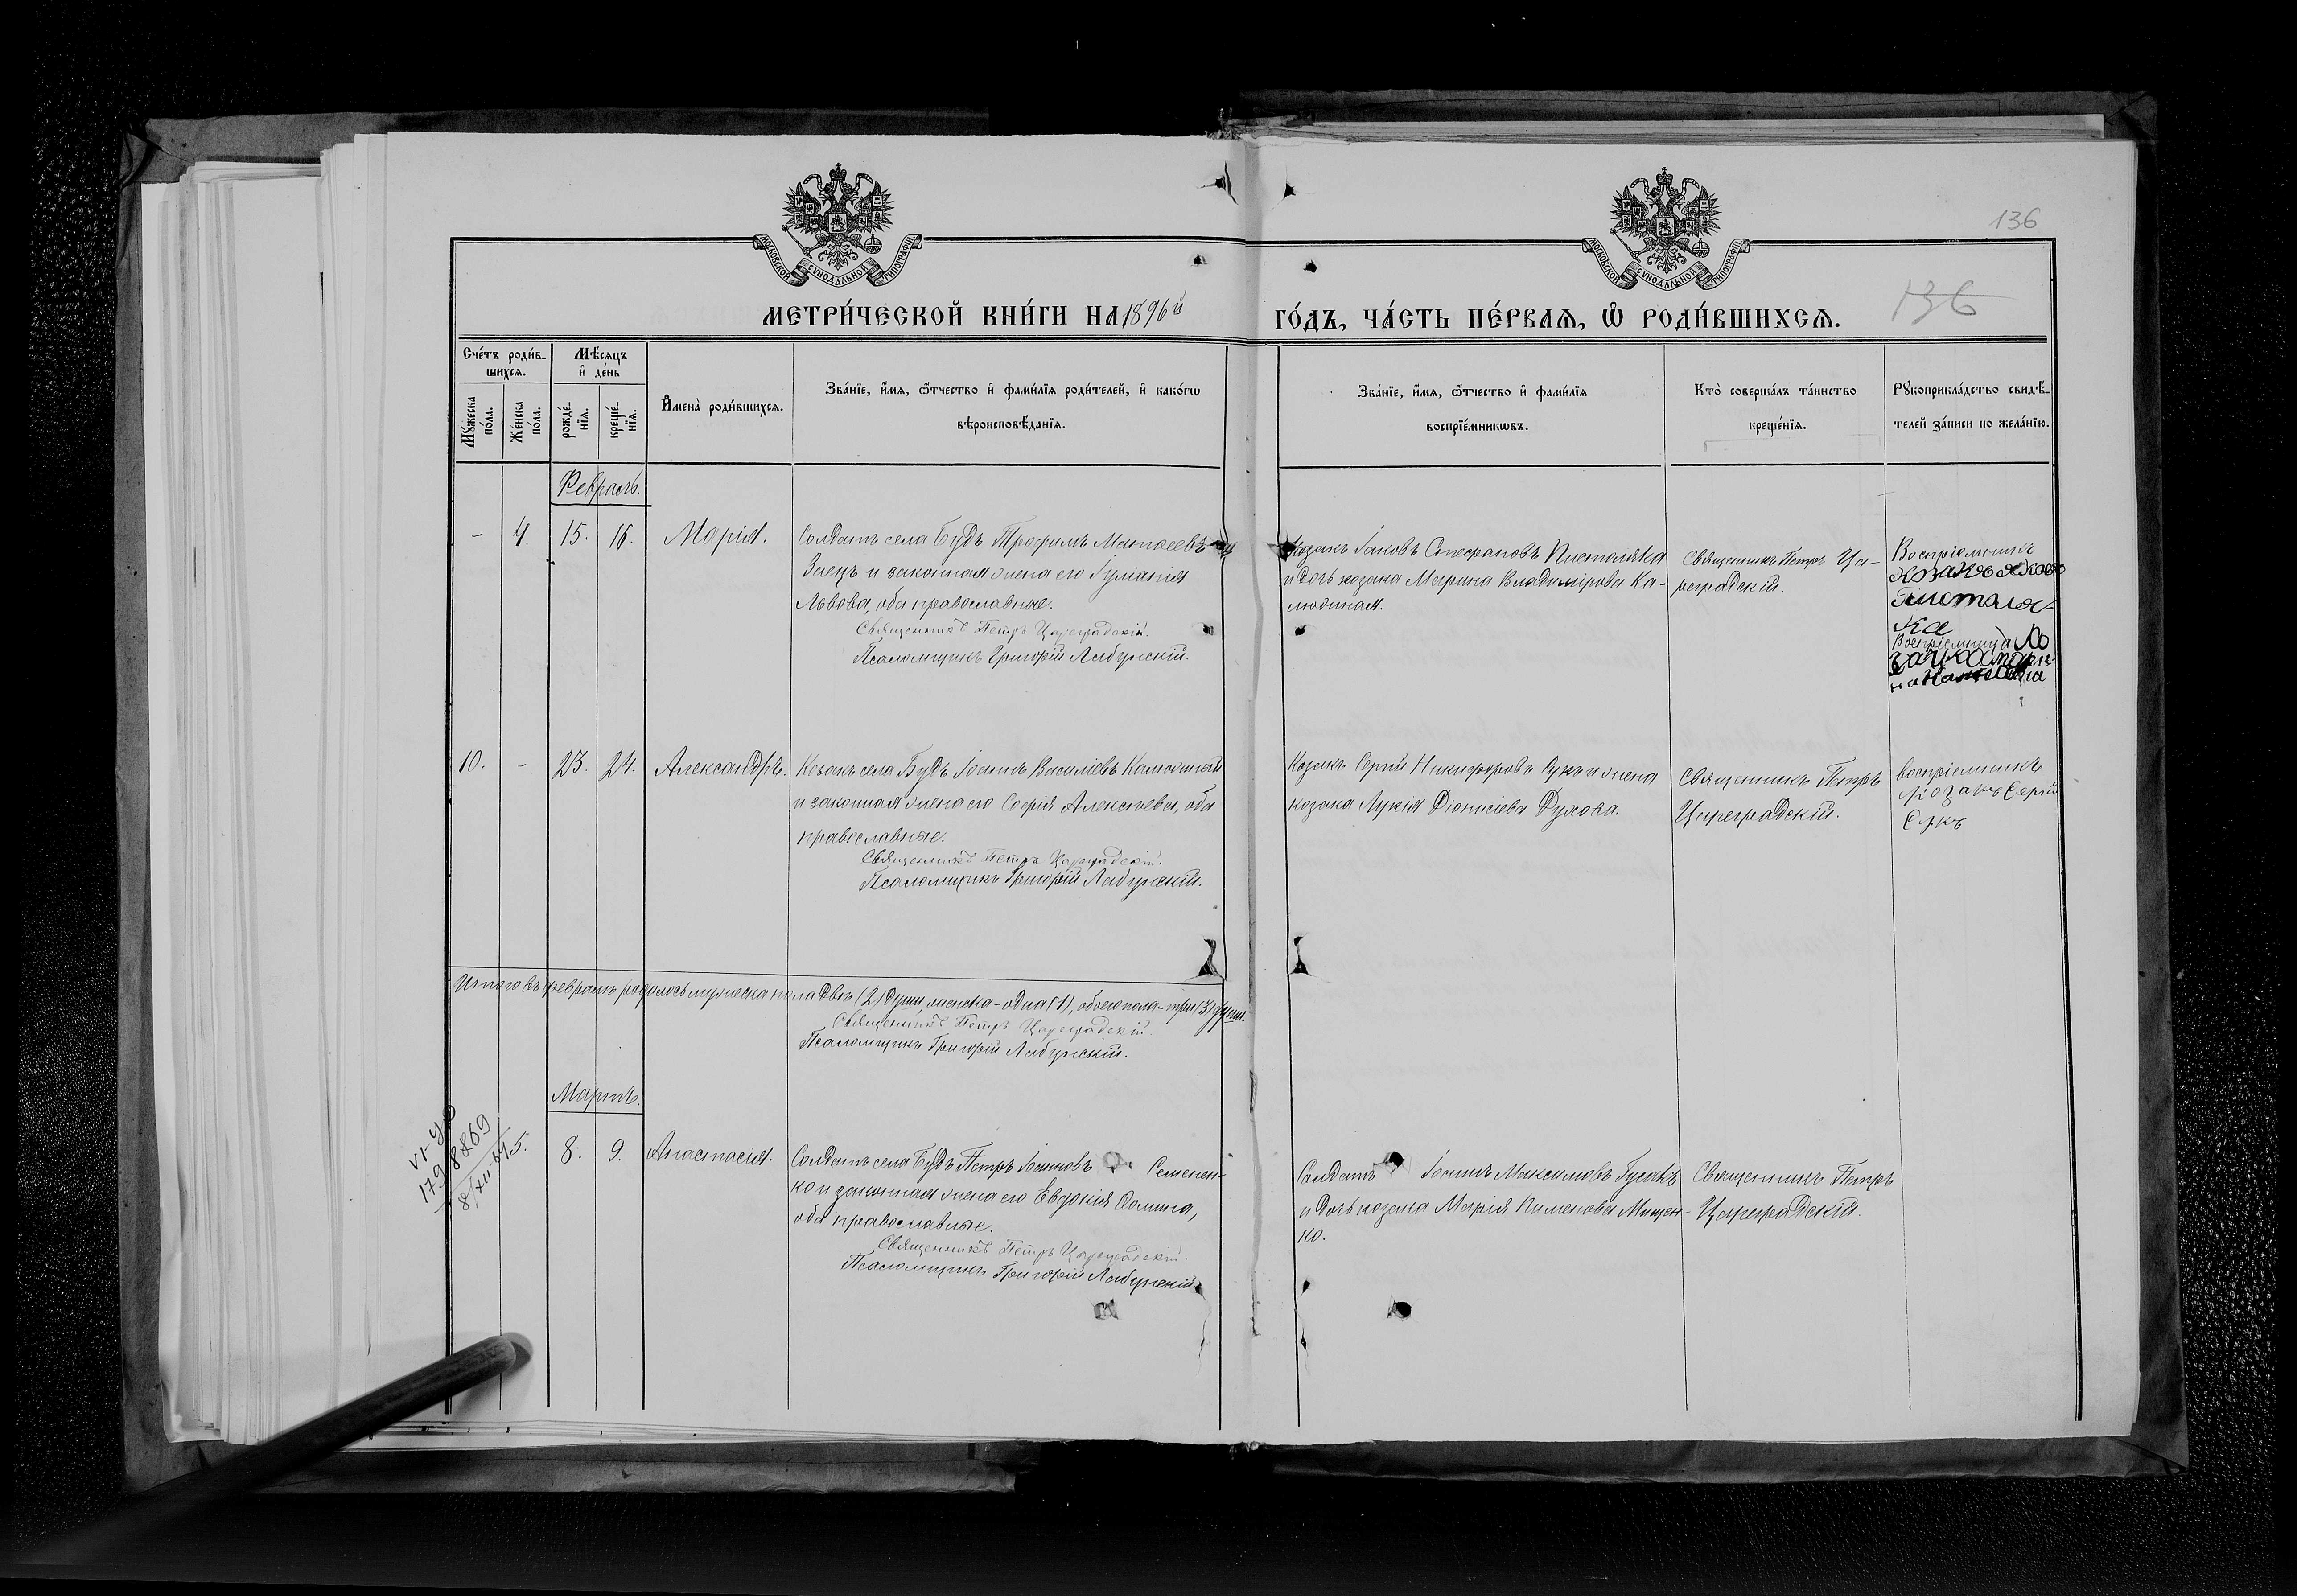 136
МОСКОВСКОЙ СѴНОДАЛЬНОЙ ТИПОГРАФІИ
МОСКОВСКОЙ СѴНОДАЛЬНОЙ ТИПОГРАФІИ
136
МЕТРИ́ЧЕСКОЙ КНИ́ГИ НА 1896й
ГО́ДЪ, ЧА́СТЬ ПЕ́РВАѦ, Ѡ РОДИ́ВШИХСѦ.
Сче́тъ роди́в-
шихсѧ.
Мꙋ́жеска по́ла.
Же́нска по́ла.
Мѣ́сѧцъ
и҆ де́нь
рожде́-
нїѧ.
креще́-
нїѧ.
И҆мена̀ роди́вшихсѧ.
Зва́нїе, и҆́мѧ, ѻ҆́тчество и҆ фами́лїѧ роди́телей, и҆ како́гѡ
вѣроисповѣ́данїѧ.
Зва́нїе, и҆́мѧ, ѻ҆́тчество и҆ фами́лїѧ
воспрїе́мникѡвъ.
Кто̀ соверша́лъ та́инство
креще́нїѧ.
Рꙋкоприкла́дство свидѣ́-
телей за́писи по жела́нїю.
Февраль.
- 4. 15. 16. Марія.
Солдатъ села Будъ Трофимъ Матѳеевъ
Заецъ и законная жена его Іуліанія
Львова, оба православные.
Священникъ Петръ Цареградскій.
Псаломщикъ Григорій Лабунскій.
Козакъ Іаковъ Стефановъ Пистоляка
и дочь козака Марина Владимірова Ка-
людиная.
Священникъ Петръ Ца-
реградскій.
Воспріемникъ
козакъ
Пистоля-
ка
Воспріемница
10. - 23. 24. Александръ.
Козакъ села Будъ Іоаннъ Василіевъ
и законная жена его Софія Алексѣева, оба
православные.
Священникъ Петръ Цареградскій.
Псаломщикъ Григорій Лабунскій.
Козакъ Сергій Никифоровъ и жена
козака Лукія Діонисіева
Священникъ Петръ
Цареградскій.
Воспріемникъ
козакъ Сергій
Итого въ февралѣ родилось мужеска пола двѣ (2) души женска - одна (1), обоего пола - три (3) души.
Священникъ Петръ Цареградскій.
Псаломщикъ Григорій Лабунскій.
Мартъ.
5. 8. 9. Анастасія.
Солдатъ села Будъ Петръ Іоанновъ Семенен-
ко и законная жена его Евдокія Ѳомина,
оба православные.
Священникъ Петръ Цареградскій.
Псаломщикъ Григорій Лабунскій.
Солдатъ Іоаннъ Максимовъ Гусакъ
и дочь козака Марія Пименова Мищен-
ко.
Священникъ Петръ
Цареградскій.